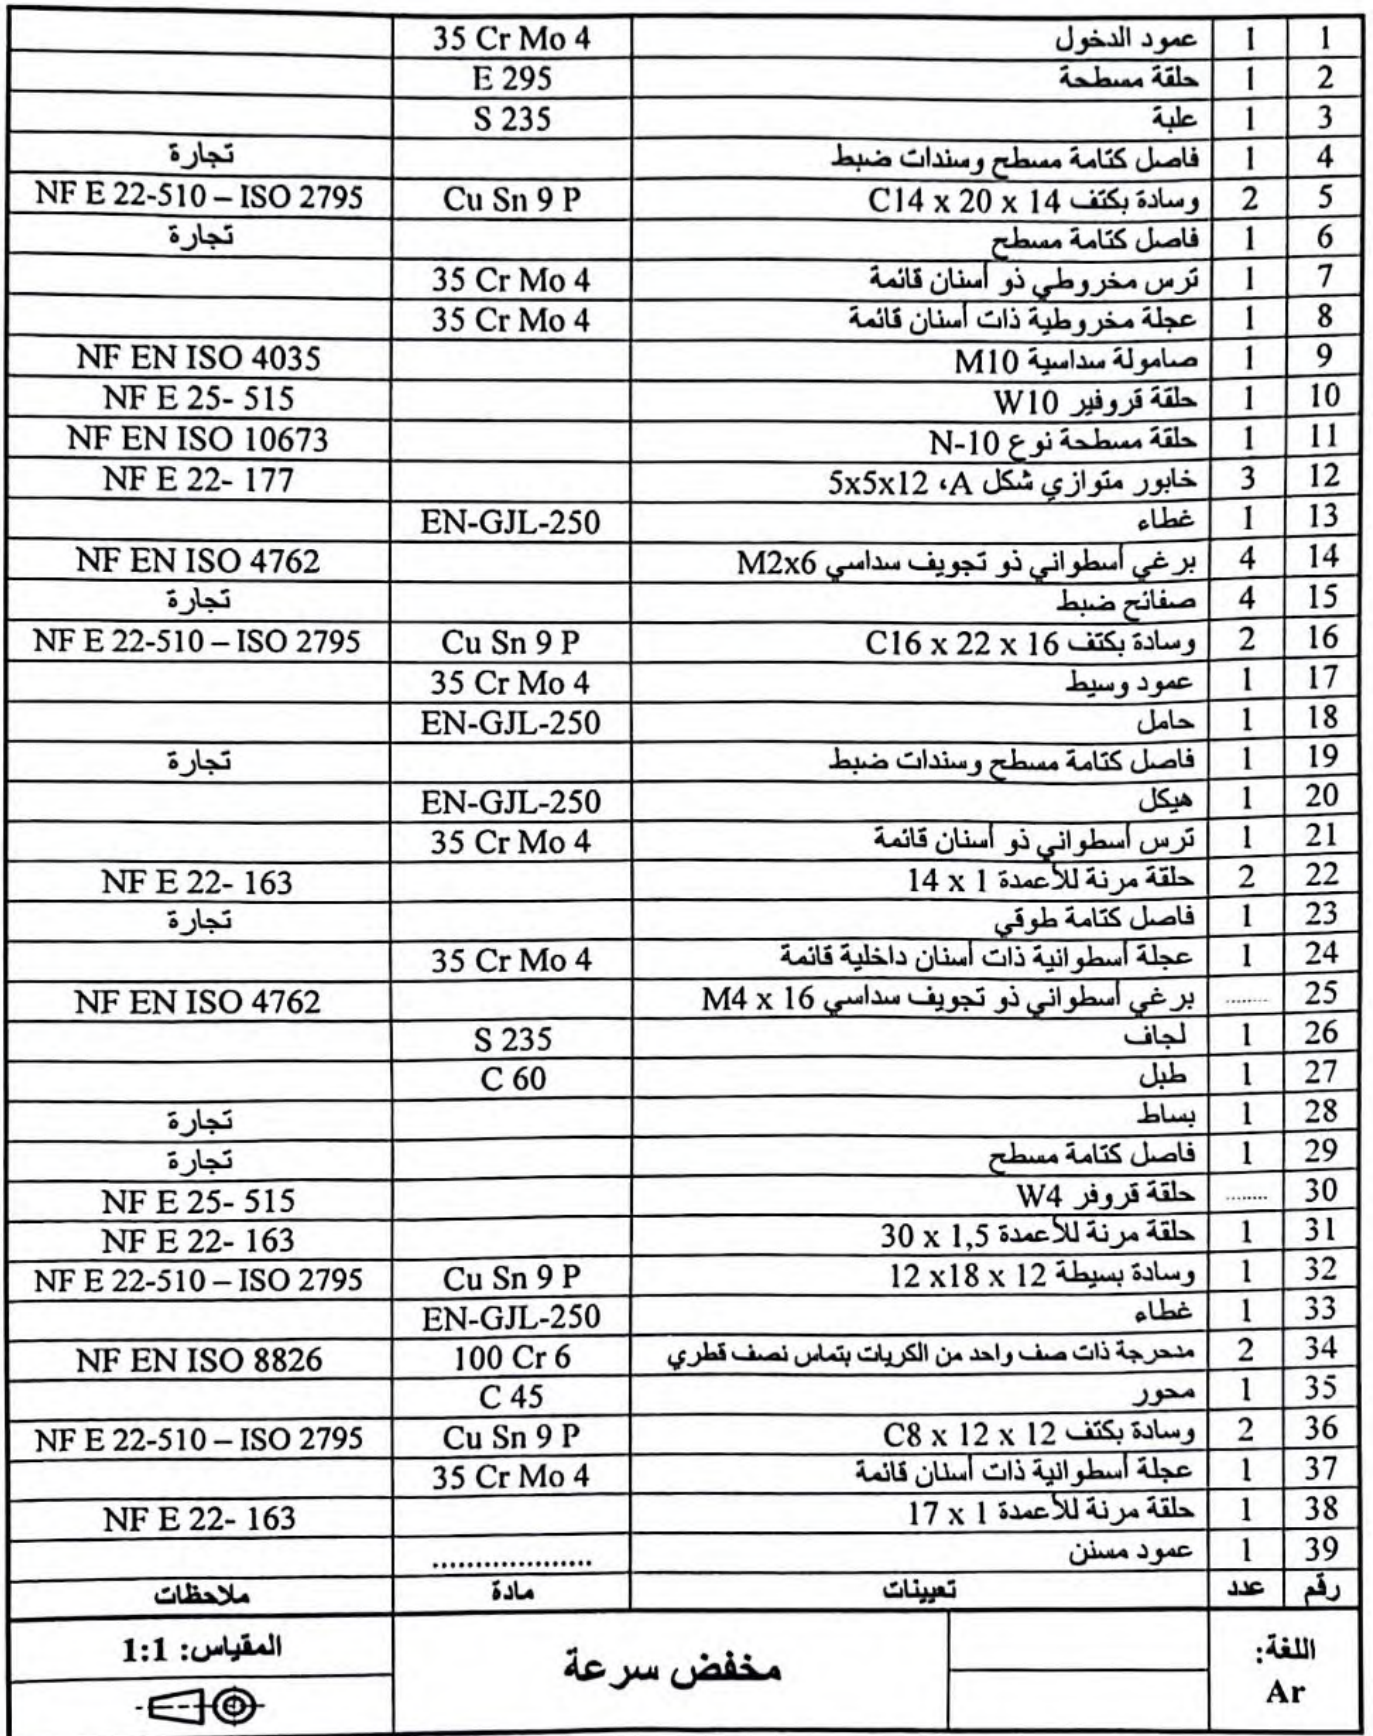 1 1 عمود الدخول 35 Cr Mo 4
2 1 حلقة مسطحة E 295
3 1 علبة S 235
4 1 فاصل كتامة مسطح وسندات ضبط تجارة
5 2 وسادة بكتف C14 x 20 x 14 Cu Sn 9 P NF E 22-510 – ISO 2795
6 1 فاصل كتامة مسطح تجارة
7 1 ترس مخروطي ذو أسنان قائمة 35 Cr Mo 4
8 1 عجلة مخروطية ذات أسنان قائمة 35 Cr Mo 4
9 1 صامولة سداسية M10 NF EN ISO 4035
10 1 حلقة قروفير W10 NF E 25- 515
11 1 حلقة مسطحة نوع N-10 NF EN ISO 10673
12 3 خابور متوازي شكل A، 5x5x12 NF E 22- 177
13 1 غطاء EN-GJL-250
14 4 برغي أسطواني ذو تجويف سداسي M2x6 NF EN ISO 4762
15 4 صفائح ضبط تجارة
16 2 وسادة بكتف C16 x 22 x 16 Cu Sn 9 P NF E 22-510 – ISO 2795
17 1 عمود وسيط 35 Cr Mo 4
18 1 حامل EN-GJL-250
19 1 فاصل كتامة مسطح وسندات ضبط تجارة
20 1 هيكل EN-GJL-250
21 1 ترس أسطواني ذو أسنان قائمة 35 Cr Mo 4
22 2 حلقة مرنة للأعمدة 14 x 1 NF E 22- 163
23 1 فاصل كتامة طوقي تجارة
24 1 عجلة أسطوانية ذات أسنان داخلية قائمة 35 Cr Mo 4
25 ........ برغي أسطواني ذو تجويف سداسي M4 x 16 NF EN ISO 4762
26 1 لجاف S 235
27 1 طبل C 60
28 1 بساط تجارة
29 1 فاصل كتامة مسطح تجارة
30 ........ حلقة قروفر W4 NF E 25- 515
31 1 حلقة مرنة للأعمدة 30 x 1,5 NF E 22- 163
32 1 وسادة بسيطة 12 x18 x 12 Cu Sn 9 P NF E 22-510 – ISO 2795
33 1 غطاء EN-GJL-250
34 2 مدحرجة ذات صف واحد من الكريات بتماس نصف قطري 100 Cr 6 NF EN ISO 8826
35 1 محور C 45
36 2 وسادة بكتف C8 x 12 x 12 Cu Sn 9 P NF E 22-510 – ISO 2795
37 1 عجلة أسطوانية ذات أسنان قائمة 35 Cr Mo 4
38 1 حلقة مرنة للأعمدة 17 x 1 NF E 22- 163
39 1 عمود مسنن ..................
رقم عدد تعيينات مادة ملاحظات
اللغة:
Ar
مخفض سرعة
المقياس: 1:1